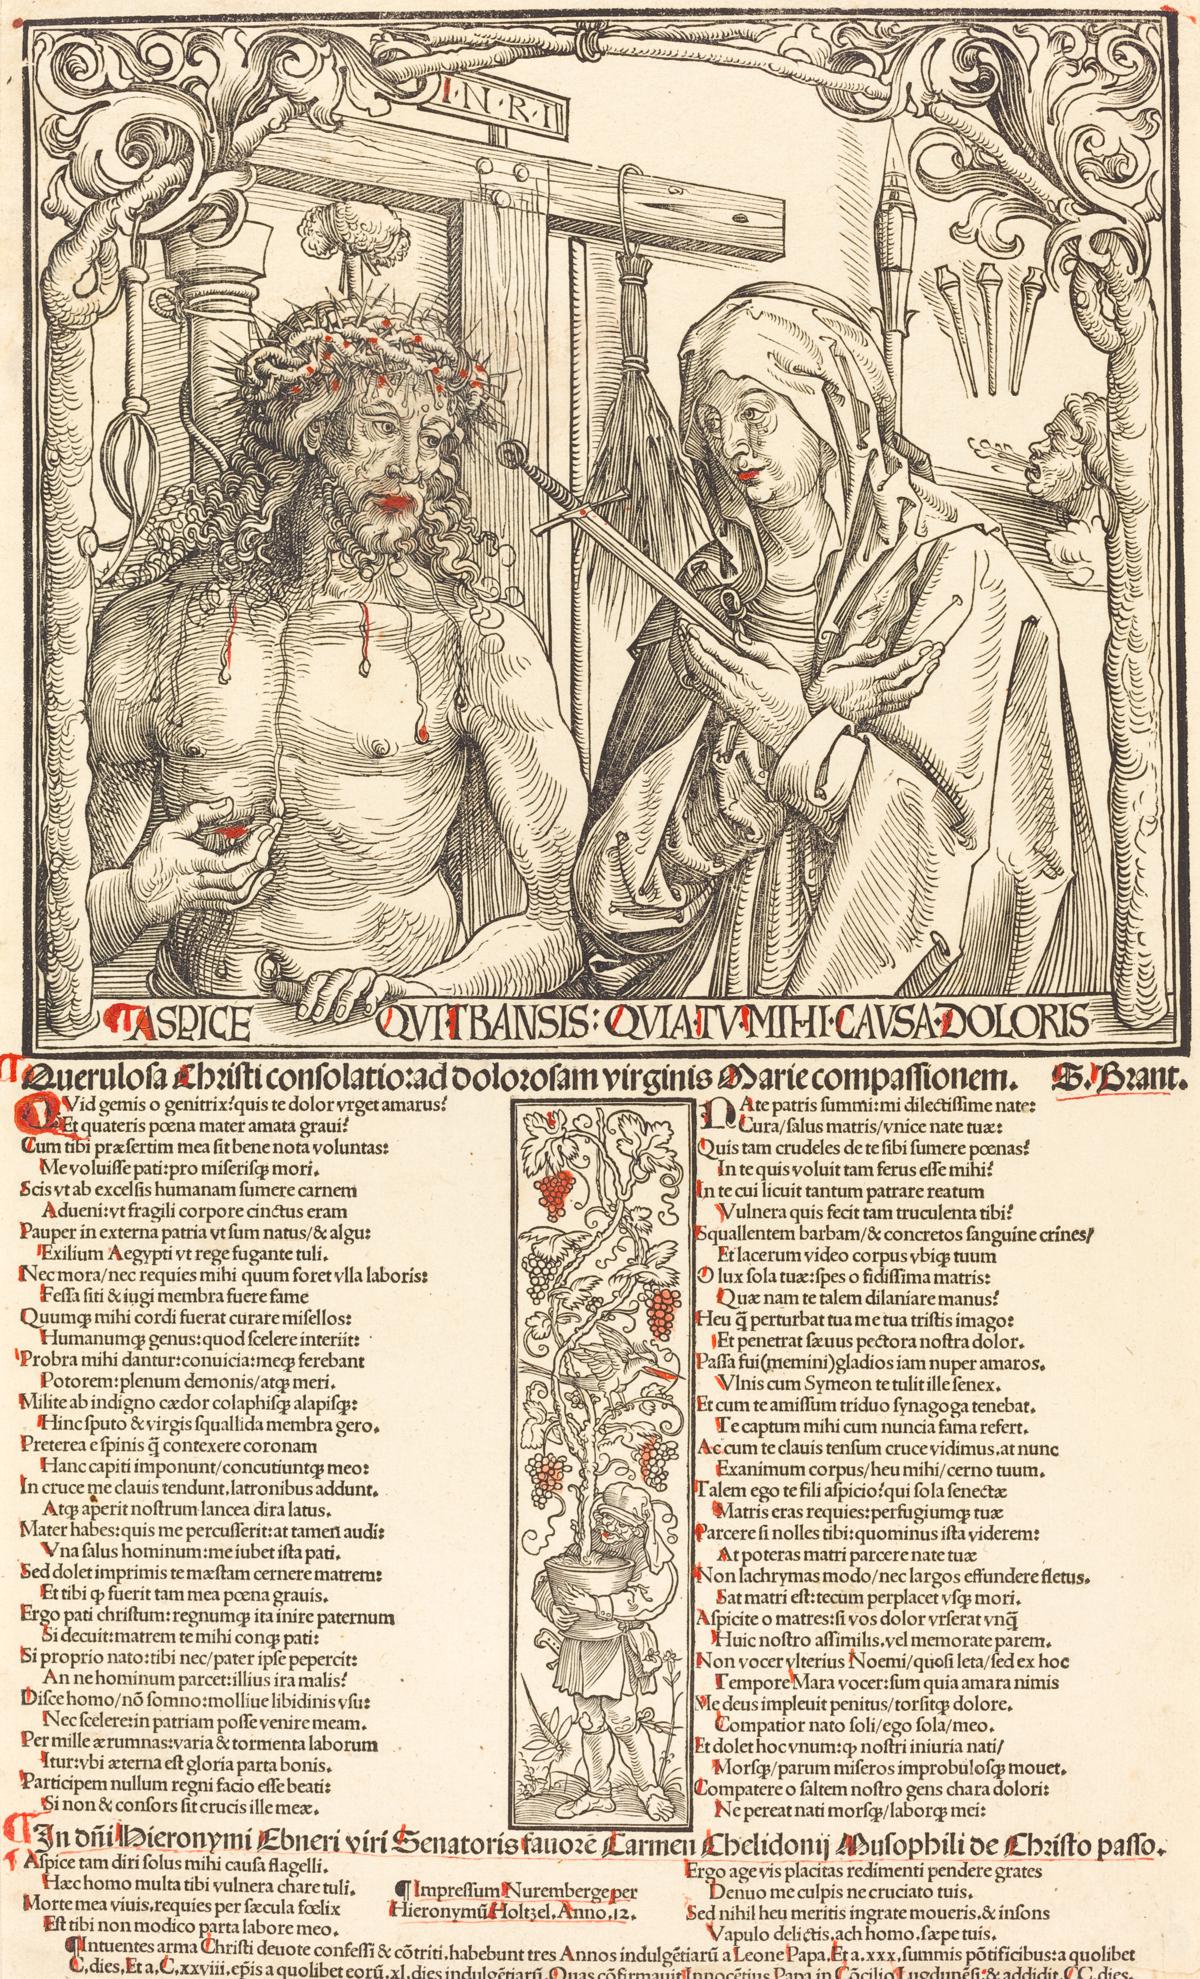 I·N·R·I
ASPICE QVI TRANSIS: QVIA TV MIHI CAVSA DOLORIS
Querulosa Christi consolatio: ad dolorosam virginis Marie compassionem. S. Brant.
QVid gemis o genitrix? quis te dolor vrget amarus?
Et quateris pœna mater amata graui?
Cum tibi præsertim mea sit bene nota voluntas:
Me voluisse pati: pro miserisq̃ mori.
Scis vt ab excelsis humanam sumere carnem
Adueni: vt fragili corpore cinctus eram
Pauper in externa patria vt sum natus/ & algu:
Exilium Aegypti vt rege fugante tuli.
Nec mora/ nec requies mihi quum foret vlla laboris:
Fessa siti & iugi membra fuere fame
Quumq̃ mihi cordi fuerat curare misellos:
Humanumq̃ genus: quod scelere interiit:
Probra mihi dantur: conuicia: meq̃ ferebant
Potorem: plenum demonis/ atq̃ meri.
Milite ab indigno cædor colaphisq̃ alapisq̃:
Hinc sputo & virgis squallida membra gero.
Preterea e spinis q̃ contexere coronam
Hanc capiti imponunt/ concutiuntq̃ meo:
In cruce me clauis tendunt, latronibus addunt.
Atq̃ aperit nostrum lancea dira latus.
Mater habes: quis me percusserit: at tamen audi:
Vna salus hominum: me iubet ista pati.
Sed dolet imprimis te mæstam cernere matrem:
Et tibi ꝙ fuerit tam mea pœna grauis.
Ergo pati christum: regnumq̃ ita inire paternum
Si decuit: matrem te mihi conq̃ pati:
Si proprio nato: tibi nec/ pater ipse pepercit:
An ne hominum parcet: illius ira malis?
Disce homo/ nō somno: molliue libidinis vsu:
Nec scelere: in patriam posse venire meam.
Per mille ærumnas: varia & tormenta laborum
Itur: vbi æterna est gloria parta bonis.
Participem nullum regni facio esse beati:
Si non & consors sit crucis ille meæ.
NAte patris summi: mi dilectissime nate:
Cura/ salus matris/ vnice nate tuæ:
Quis tam crudeles de te sibi sumere pœnas?
In te quis voluit tam ferus esse mihi?
In te cui licuit tantum patrare reatum
Vulnera quis fecit tam truculenta tibi?
Squallentem barbam/ & concretos sanguine crines/
Et lacerum video corpus vbiq̃ tuum
O lux sola tuæ: spes o fidissima matris:
Quæ nam te talem dilaniare manus?
Heu q̃ perturbat tua me tua tristis imago:
Et penetrat sæuus pectora nostra dolor.
Passa fui (memini) gladios iam nuper amaros.
Vlnis cum Symeon te tulit ille senex.
Et cum te amissum triduo synagoga tenebat.
Te captum mihi cum nuncia fama refert.
Ac cum te clauis tensum cruce vidimus. at nunc
Exanimum corpus/ heu mihi/ cerno tuum.
Talem ego te fili aspicio? qui sola senectæ
Matris eras requies: perfugiumq̃ tuæ
Parcere si nolles tibi: quominus ista viderem:
At poteras matri parcere nate tuæ
Non lachrymas modo/ nec largos effundere fletus.
Sat matri est: tecum perplacet vsq̃ mori.
Aspicite o matres: si vos dolor vrserat vnq̃
Huic nostro assimilis. vel memorate parem.
Non vocer vlterius Noemi/ quosi leta/ sed ex hoc
Tempore Mara vocer: sum quia amara nimis
Me deus impleuit penitus/ torsitq̃ dolore.
Compatior nato soli/ ego sola/ meo.
Et dolet hoc vnum: ꝙ nostri iniuria nati/
Morsq̃/ parum miseros improbulosq̃ mouet.
Compatere o saltem nostro gens chara dolori:
Ne pereat nati morsq̃/ laborq̃ mei:
In dñi Hieronymi Ebneri viri Senatoris fauorē Carmen Chelidonij Musophili de Christo passo.
Aspice tam diri solus mihi causa flagelli.
Hæc homo multa tibi vulnera chare tuli.
Morte mea viuis. requies per sæcula fœlix
Est tibi non modico parta labore meo.
Impressum Nuremberge per
Hieronymū Holtzel. Anno. 12.
Ergo age vis placitas redimenti pendere grates
Denuo me culpis ne cruciato tuis.
Sed nihil heu meritis ingrate moueris. & insons
Vapulo delictis. ach homo. sæpe tuis.
Intuentes arma Christi deuote confessi & cōtriti. habebunt tres Annos indulgētiarū a Leone Papa. Et a. xxx. summis pōtificibus: a quolibet
C. dies. Et a. C. xxviii. ep̄is a quolibet eorū. xl. dies indulgētiarū. Quas cōfirmauit Innocētius Papa in Cōcilio Lugdunēsi: & addidit. CC. dies.